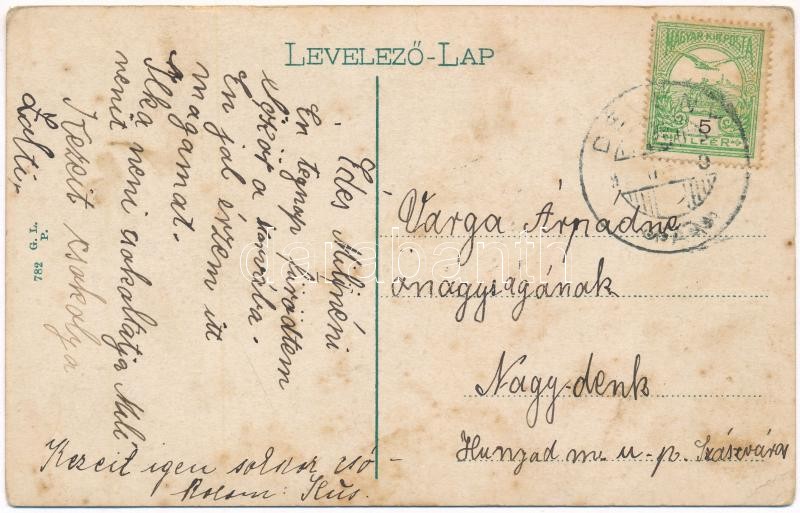 LEVELEZŐ-LAP
MAGYAR KIR. POSTA
5
FILLÉR
Édes Miliznéni
Én tegnap fürödtem
először a
Én jól érzem itt
magamat.
Ilka néni csokoltatja Mili
nénit
Kezeit csokolja
Lalli
Kezeit igen sokszor csó-
kolom: Kus.
Varga Árpádne
önagyságának
Nagy-denk
Hunyad m. u-p. Szászváros
782 G. L.
P.
darabanth